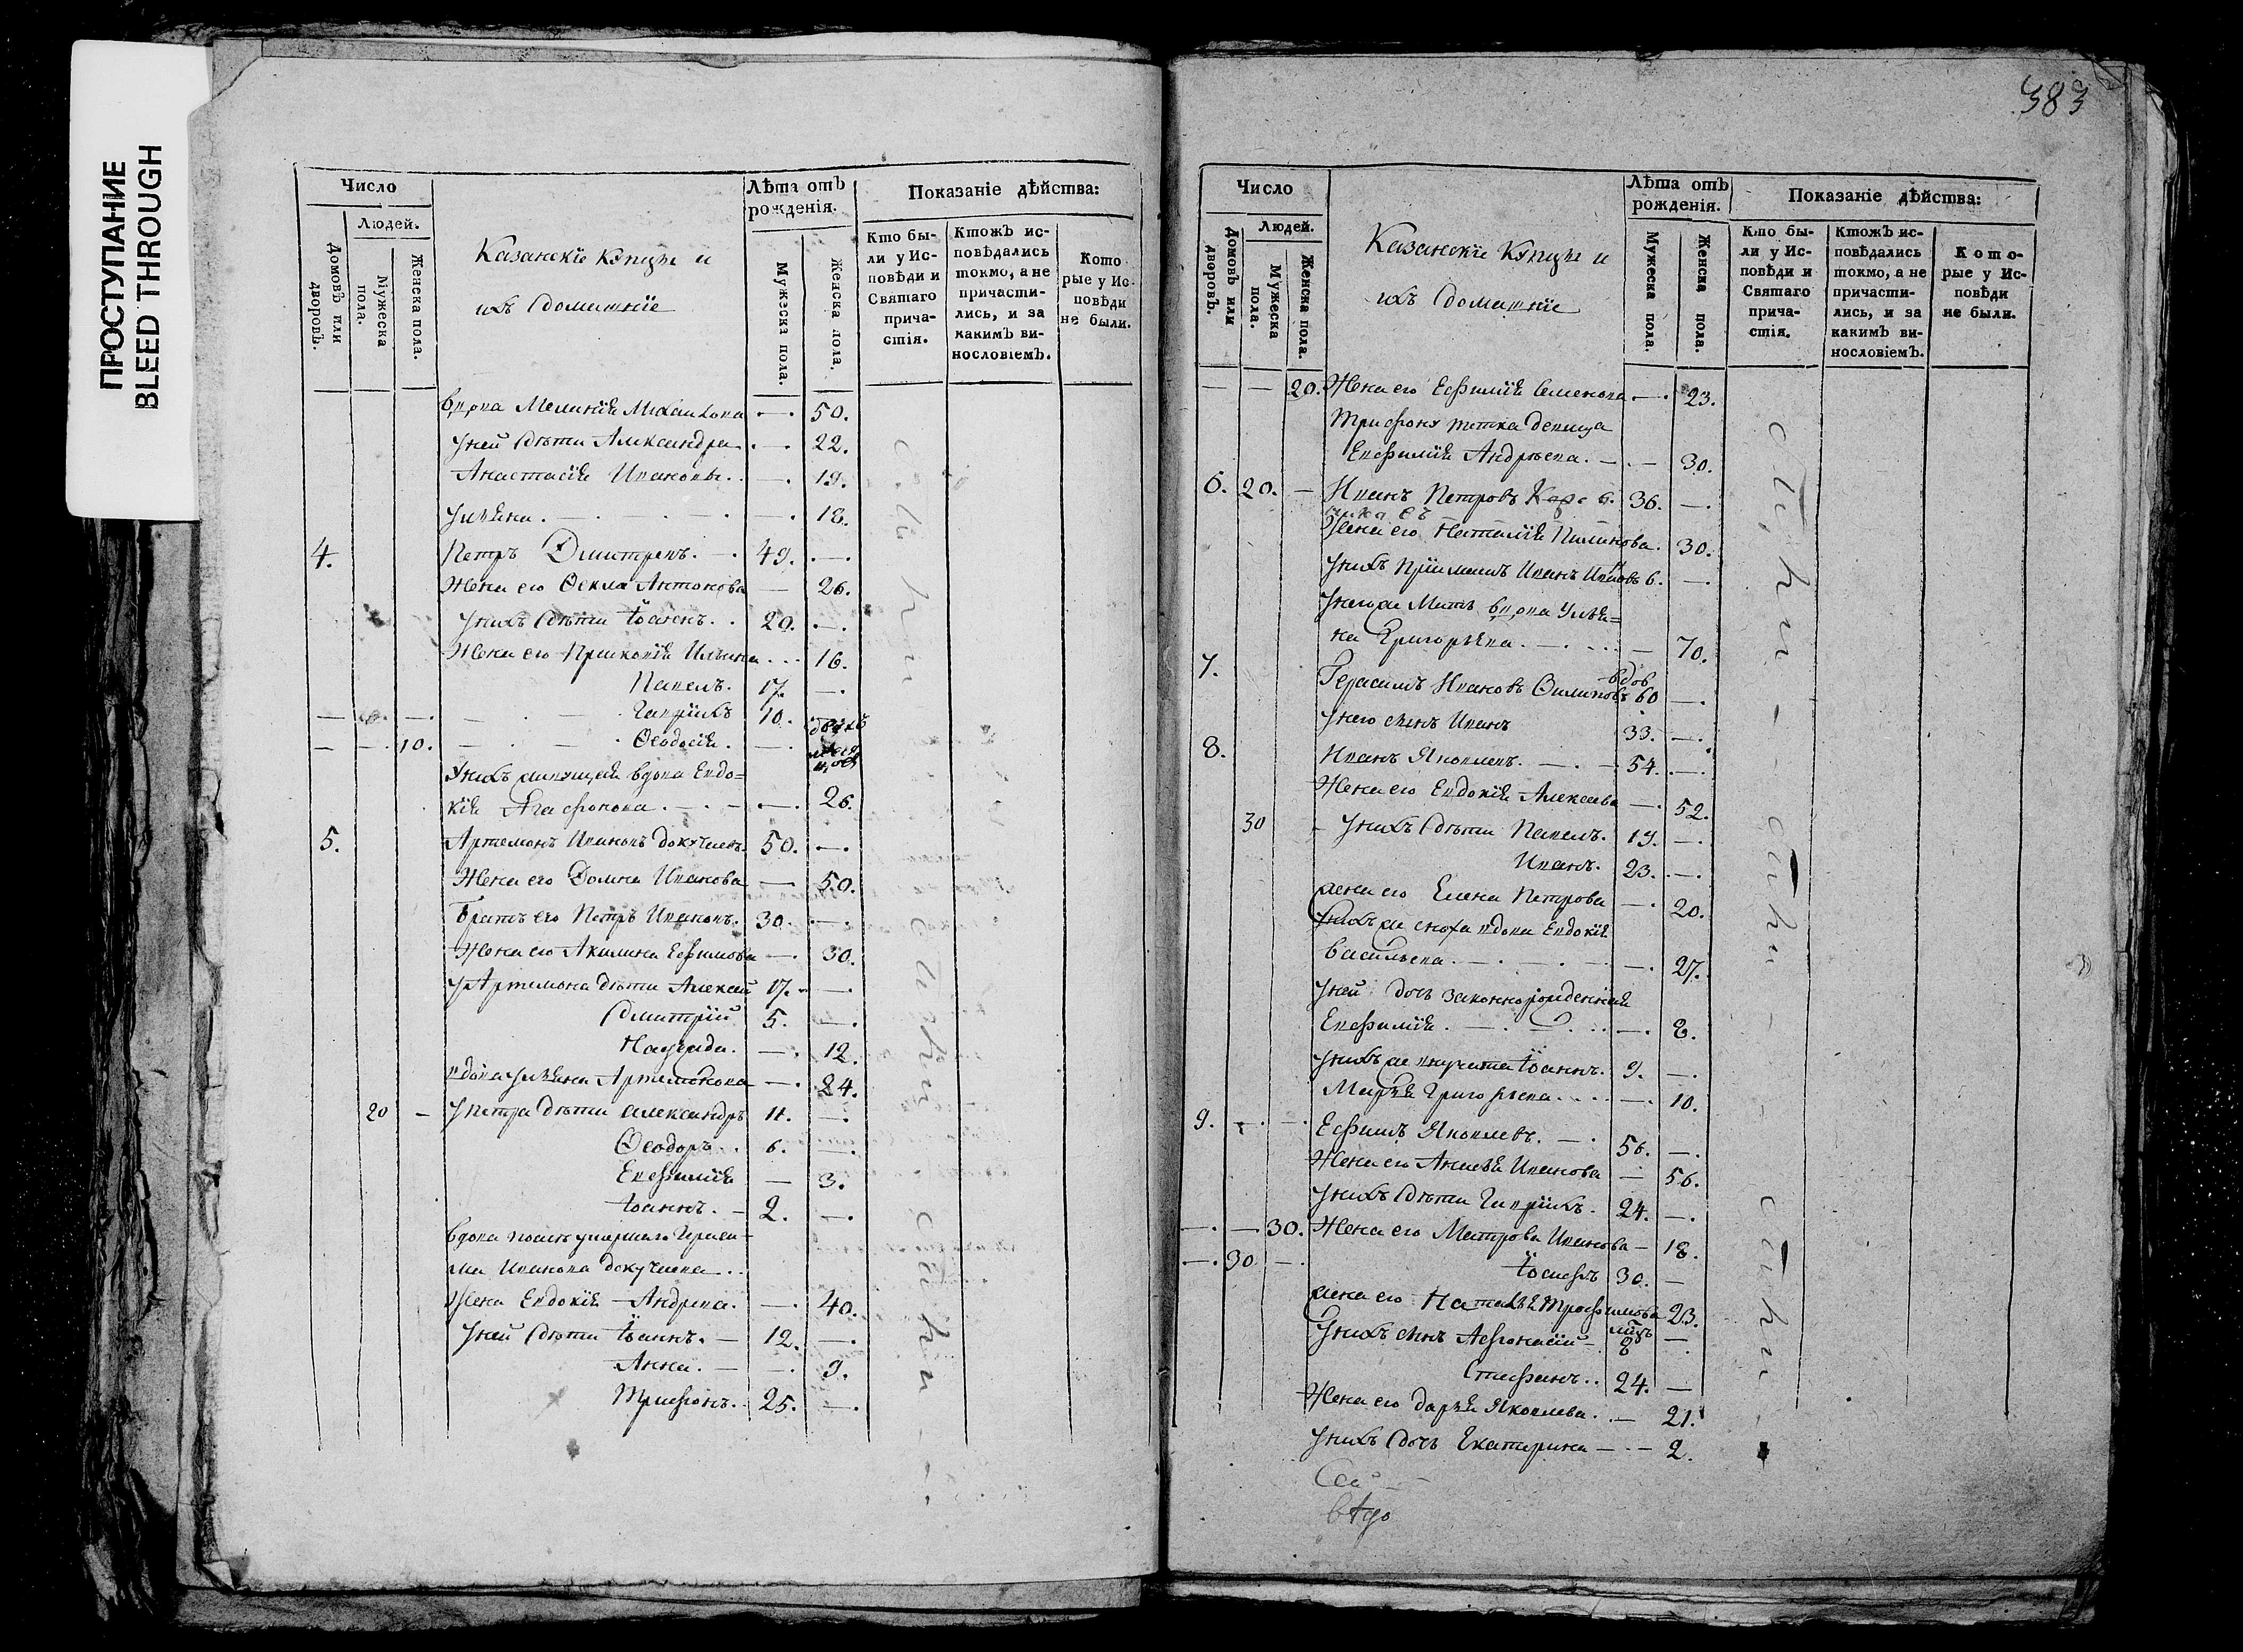 ПРОСТУПАНИЕ
BLEED THROUGH
Число
Людей.
Домовъ или дворовъ.
Мужеска пола.
Женска пола.
Казанскіе Купцы и
ихъ домашніе
Лѣта отъ рожденія.
Мужеска пола.
Женска пола.
Показаніе дѣйства:
Кто были у Исповѣди и Святаго причастія.
Ктожъ исповѣдались токмо, а не причастились, и за какимъ винословіемъ.
Которые у Исповѣди не были.
вдова Меланія Михаилова — 50.
у ней дѣти Александра — 22.
Анастасія Ивановы — 19.
Ульяна — 18.
4. Петръ Дмитревъ. 49. —
Жена его Ѳекла Антонова — 26.
у нихъ дѣти Іоаннъ. 20. —
Жена его Прасковія Ильина 16.
Павелъ. 17. —
Гавріилъ 10.
10. Ѳеодосія. —
у нихъ живущая вдова Евдо=
кія Агафонова — 26.
5. Артемонъ Ивановъ Докучаевъ. 50. —
Жена его Домна Иванова — 50.
Братъ его Петръ Ивановъ. 30. —
Жена его Акилина Ефимова — 30.
у Артемона дѣти Алексей 17. —
Дмитрій 5. —
Надежда. — 12.
вдова Ульяна Артемонова — 24.
20 — у Петра дѣти Александръ 11. —
Ѳеодоръ 6. —
Евфимія — 3.
Іоаннъ. — 2. —
вдова послѣ умершаго Гераси-
ма Иванова Докучаева
Жена Евдокія Андреева. — 40.
у ней дѣти Іоаннъ. — 12. —
Анна. — 9.
Трифонъ. 25. —
383
Число
Людей.
Домовъ или дворовъ.
Мужеска пола.
Женска пола.
Казанскіе Купцы и
ихъ домашніе
Лѣта отъ рожденія.
Мужеска пола.
Женска пола.
Показаніе дѣйства:
Кто были у Исповѣди и Святаго причастія.
Ктожъ исповѣдались токмо, а не причастились, и за какимъ винословіемъ.
Которые у Исповѣди не были.
— — 20. Жена его Ефимія Семенова — 23.
Трифону тетка девица
Евфимія Андреева. — 30.
6. 20. — Иванъ Петровъ 36. —
Жена его Наталія Филипова. 30.
у нихъ пріимашъ Иванъ Ивановъ 6. —
у него же Мать вдова Улья=
на Григорьева — 70.
7. Герасимъ Ивановъ Филиповъ вдов 60 —
у него сынъ Иванъ 33. —
8. Иванъ Яковлевъ. — 54. —
Жена его Евдокія Алексѣева — 52.
30 — у нихъ дѣти Павелъ. 19. —
Иванъ. 23. —
жена его Елена Петрова — 20.
у нихъ же сноха вдова Евдокія
Васильева — 27.
у ней дочь законнорожденная
Евфимія — 8.
у нихъ же внучата Іоаннъ. 9. —
Марья Григорьева — 10.
9. Ефимъ Яковлевъ. 56. —
Жена его Анисья Иванова — 56.
у нихъ дѣти Гавріилъ. 24. —
— — 30. Жена его Матрона Иванова — 18.
— 30 — Іосифъ 30. —
жена его Наталья Трофимова 23.
у нихъ сынъ Афонасій — 8 —
Стефанъ 24. —
Жена его Дарья Яковлева. — 21.
у нихъ дочь Екатерина — 2.